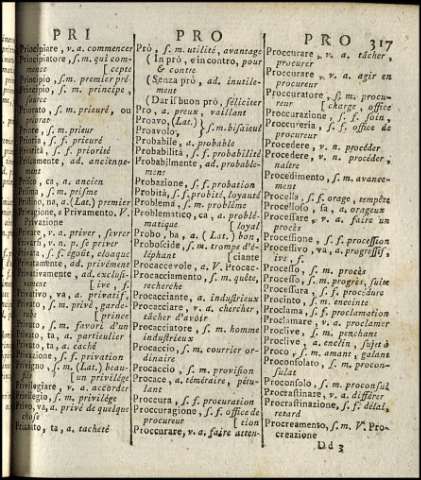 PRI
PRO
PRO
317
Principiare, v. a. commencer
Principiatore, s. m. qui com-
mence [cepte
Principio, s. m. premier pré
Principio, s. m. principe,
source
s. m. prieuré, ou
s. m. prieur
s. f. prieuré
s. f. priorité
ad. ancienne-
ment
ca, a. ancien
s. m. prisme
na, a. (Lat.) premier
Privagione, Privamento, V.
Privazione
Privare, v. a. priver, sevrer
Privarsi, v. n. p. se priver
s. f. égout, cloaque
Privatamente, ad. privément
Privativamente, ad. exclusi-
vement [ive, f.
Privativo, va, a. privatif,
Privato, s. m. privé, garde-
robe [prince
Privato, s. m. favori d'un
Privato, ta, a. particulier
Privato, ta, a. caché
Privazione, s. f. privation
Privigno, s. m. (Lat.) beau-
fils [un privilége
Privilegiare, v. a. accorder
Privilegio, s. m. privilége
Privo, va, a. privé de quelque
chose
ta, a. tacheté
Prò, s. m. utilité, avantage
(In prò, e in contro, pour
& contre
(Senza prò, ad. inutile-
ment
(Dar il buon prò, féliciter
Pro, a. preux, vaillant
Proavo, (Lat.)
Proavolo, } s. m. bisaïeul
Probabile, a. probable
Probabilità, s. f. probabilité
Probabilmente, ad. probable-
ment
Probazione, s. f. probation
Probità, s. f. probité, loyauté
Problema, s. m. problême
Problematico, ca, a. problé-
matique [loyal
Probo, ba, a. (Lat.) bon,
Proboscide, s. m. trompe d'é-
léphant [ciante
Procaccevole, a. V. Procac-
Procacciamento, s. m. quête,
recherche
Procacciante, a. industrieux
Procacciare, v. a. chercher,
tâcher d'avoir
Procacciatore, s. m. homme
industrieux
Procaccio, s. m. courrier or-
dinaire
Procaccio, s. m. provision
Procace, a. téméraire, pétu-
lant
Proccura, s. f. procuration
Proccuragione, s. f. office de
procureur [tion
Proccurare, v. a. faire atten-
Proccurare, v. a. tâcher,
procurer
Proccurare, v. a. agir en
procureur
Proccuratore, s. m. procu-
reur [charge, office
Proccurazione, s. f. soin,
Proccureria, s. f. office de
procureur
Procedere, v. n. procéder
Procedere, v. n. procéder,
naître
Procedimento, s. m. avance-
ment
Procella, s. f. orage, tempête
Procelloso, sa, a. orageux
Processare, v. a. faire un
procès
Processione, s. f. procession
Processivo, va, a. progressif,
ive, f.
Processo, s. m. procès
Processo, s. m. progrès, suite
Processura, s. f. procédure
Procinto, s. m. enceinte
Proclama, s. f. proclamation
Proclamare, v. a. proclamer
Proclive, s. m. penchant
Proclive, a. enclin, sujet à
Proco, s. m. amant, galant
Proconsolato, s. m. procon-
sulat
Proconsolo, s. m. proconsul
Procrastinare, v. a. différer
Procrastinazione, s. f. délai,
retard
Procreamento, s. m. V. Pro-
creazione
Dd 3